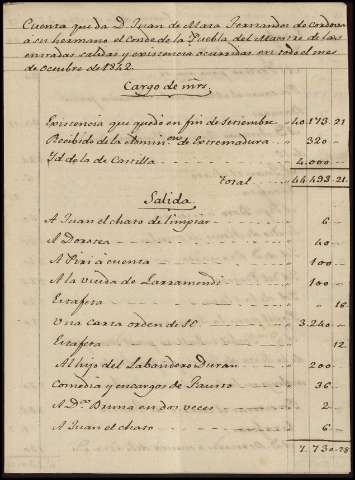 Cuenta que da D. Juan de Mata Fernandez de Cordova
á su hermano el Conde de la Puebla del Maestre de las
entradas salidas y existencia ocurridas en todo el mes
de Octubre de 1842.
Cargo de mrs.
Existencia que quedó en fin de Setiembre 40.173 21
Recibido de la Admin.on de Extremadura 320
Yd de la de Castilla 4.000
Total 44.493 21
Salida
A Juan el chaso de limpiar 6
A Dorotea 40
A Piri á cuenta 100
A la viuda de Larramendi 100
Estafeta 16
Una carta orden de SC 3.240
Estafeta 12
Al hijo del Labandero Duran 200
Comedia y encargos de Fausto 36
A D.ª Bruna en dos veces 2
A Juan el chaso 6